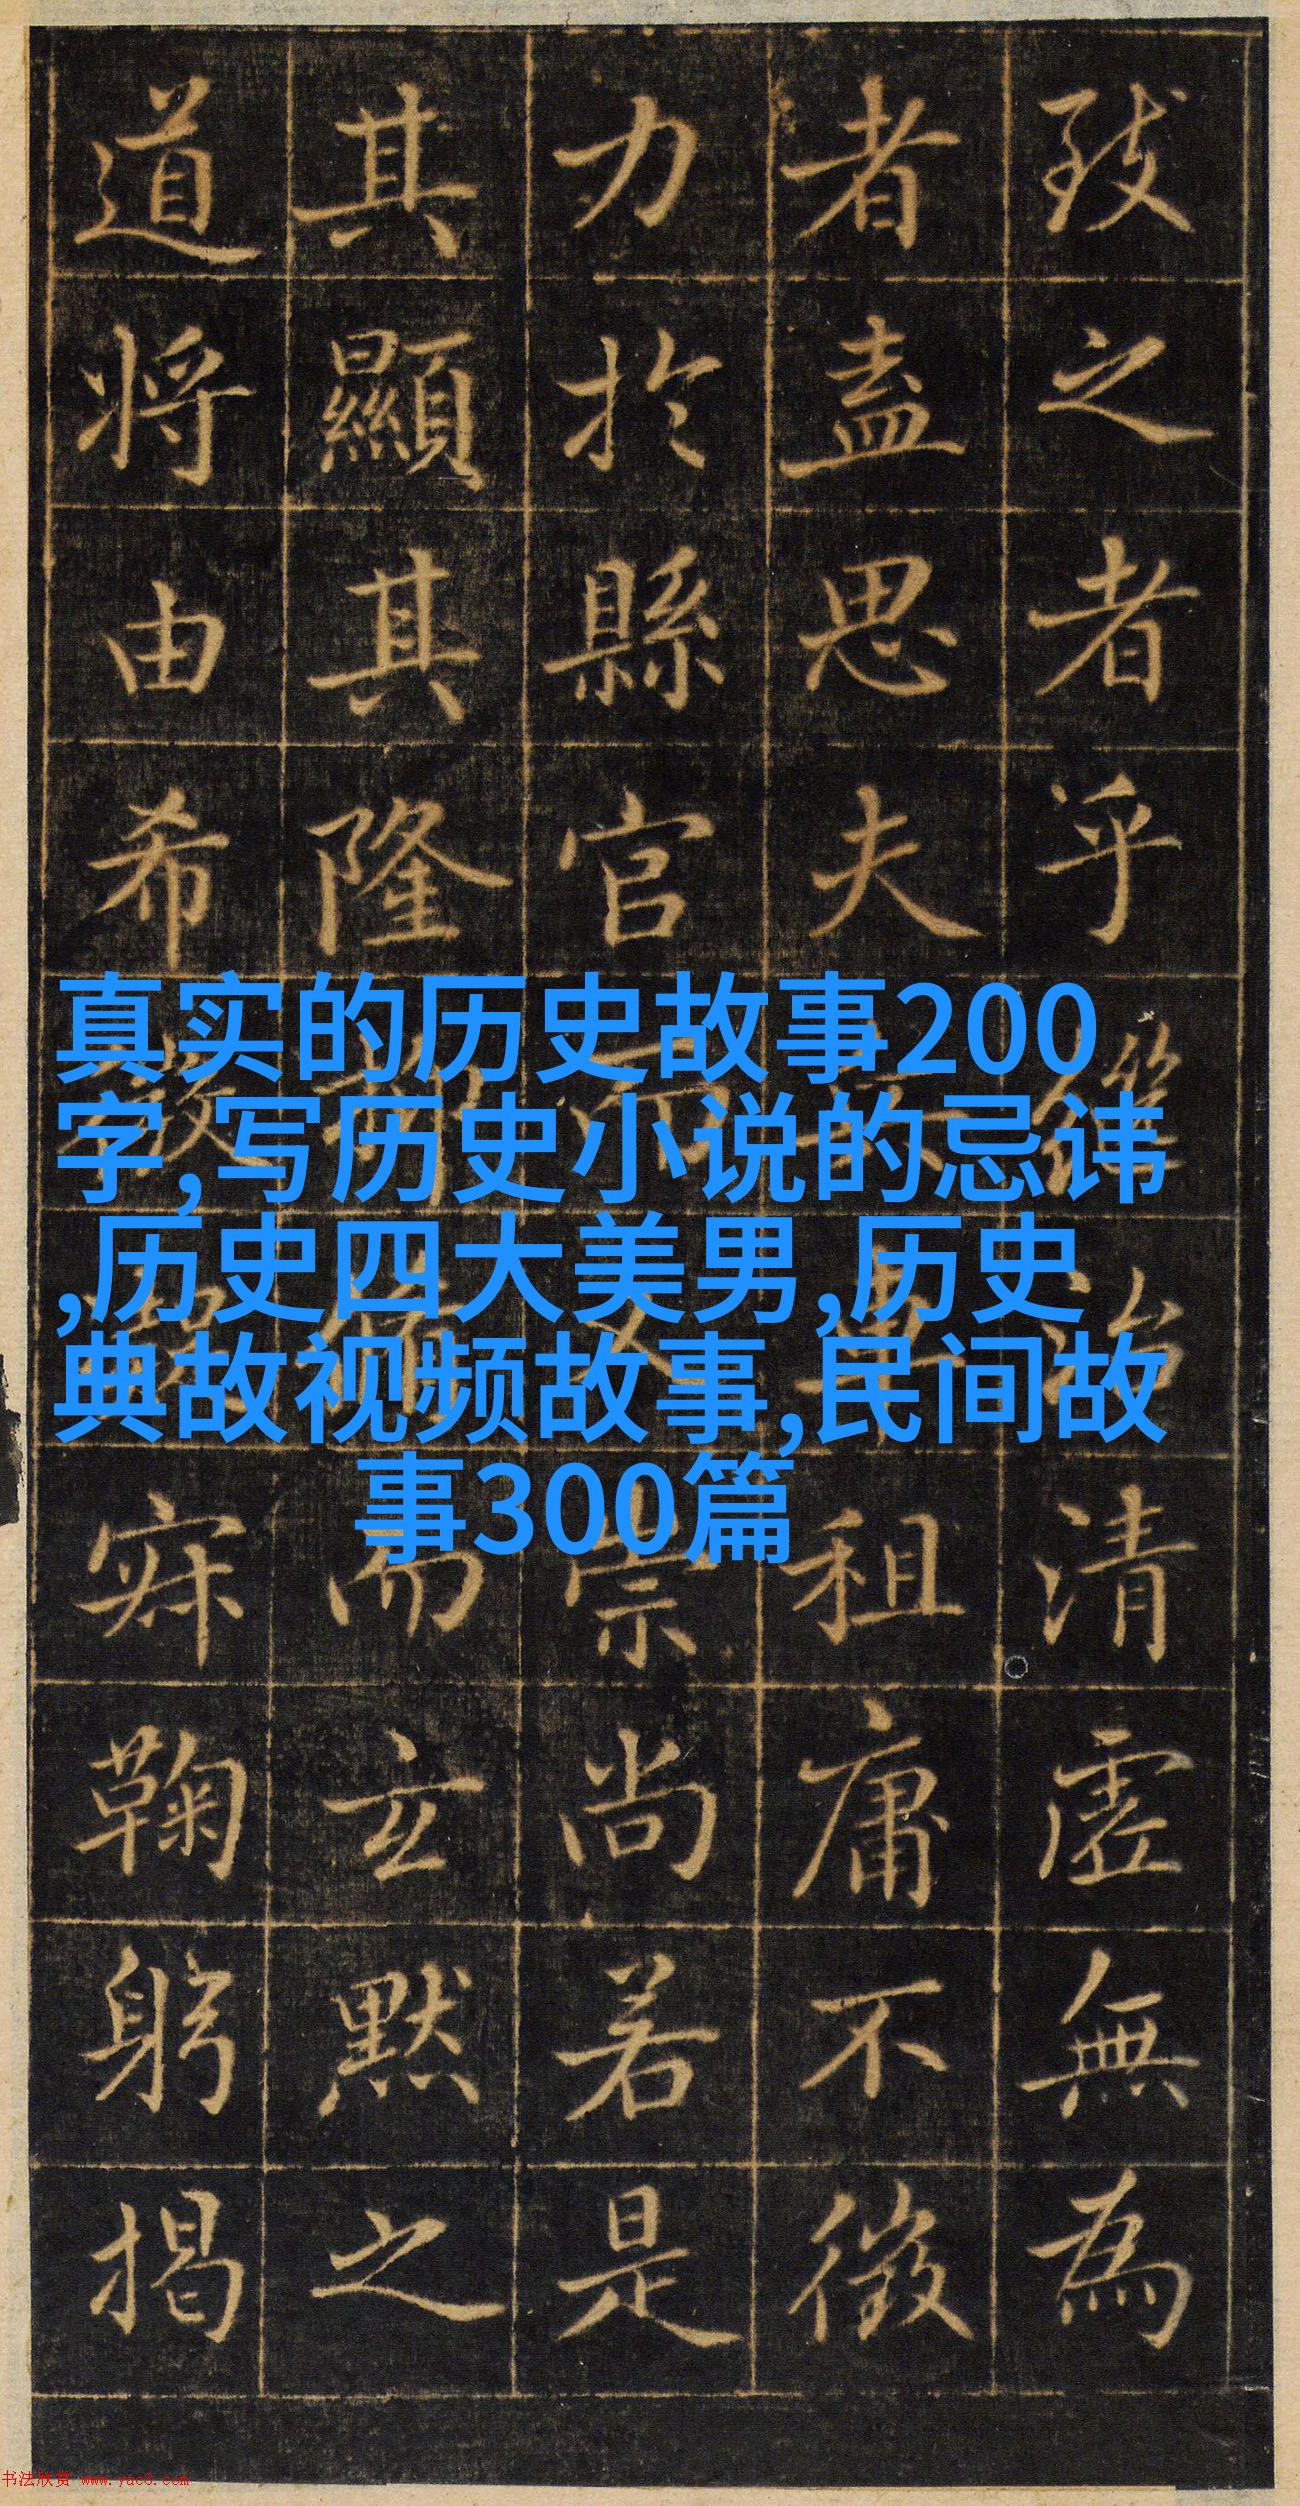 致之者乎
治清虛無為
者盡思夫
租庸不徵
力於縣官
崇尚若是
其顯其隆
而玄默之
道將由希
寐鞠躬揭
真实的历史故事200
字,写历史小说的忌讳
,历史四大美男,历史
典故视频故事,民间故
事300篇
书法欣赏 www.yac8.com